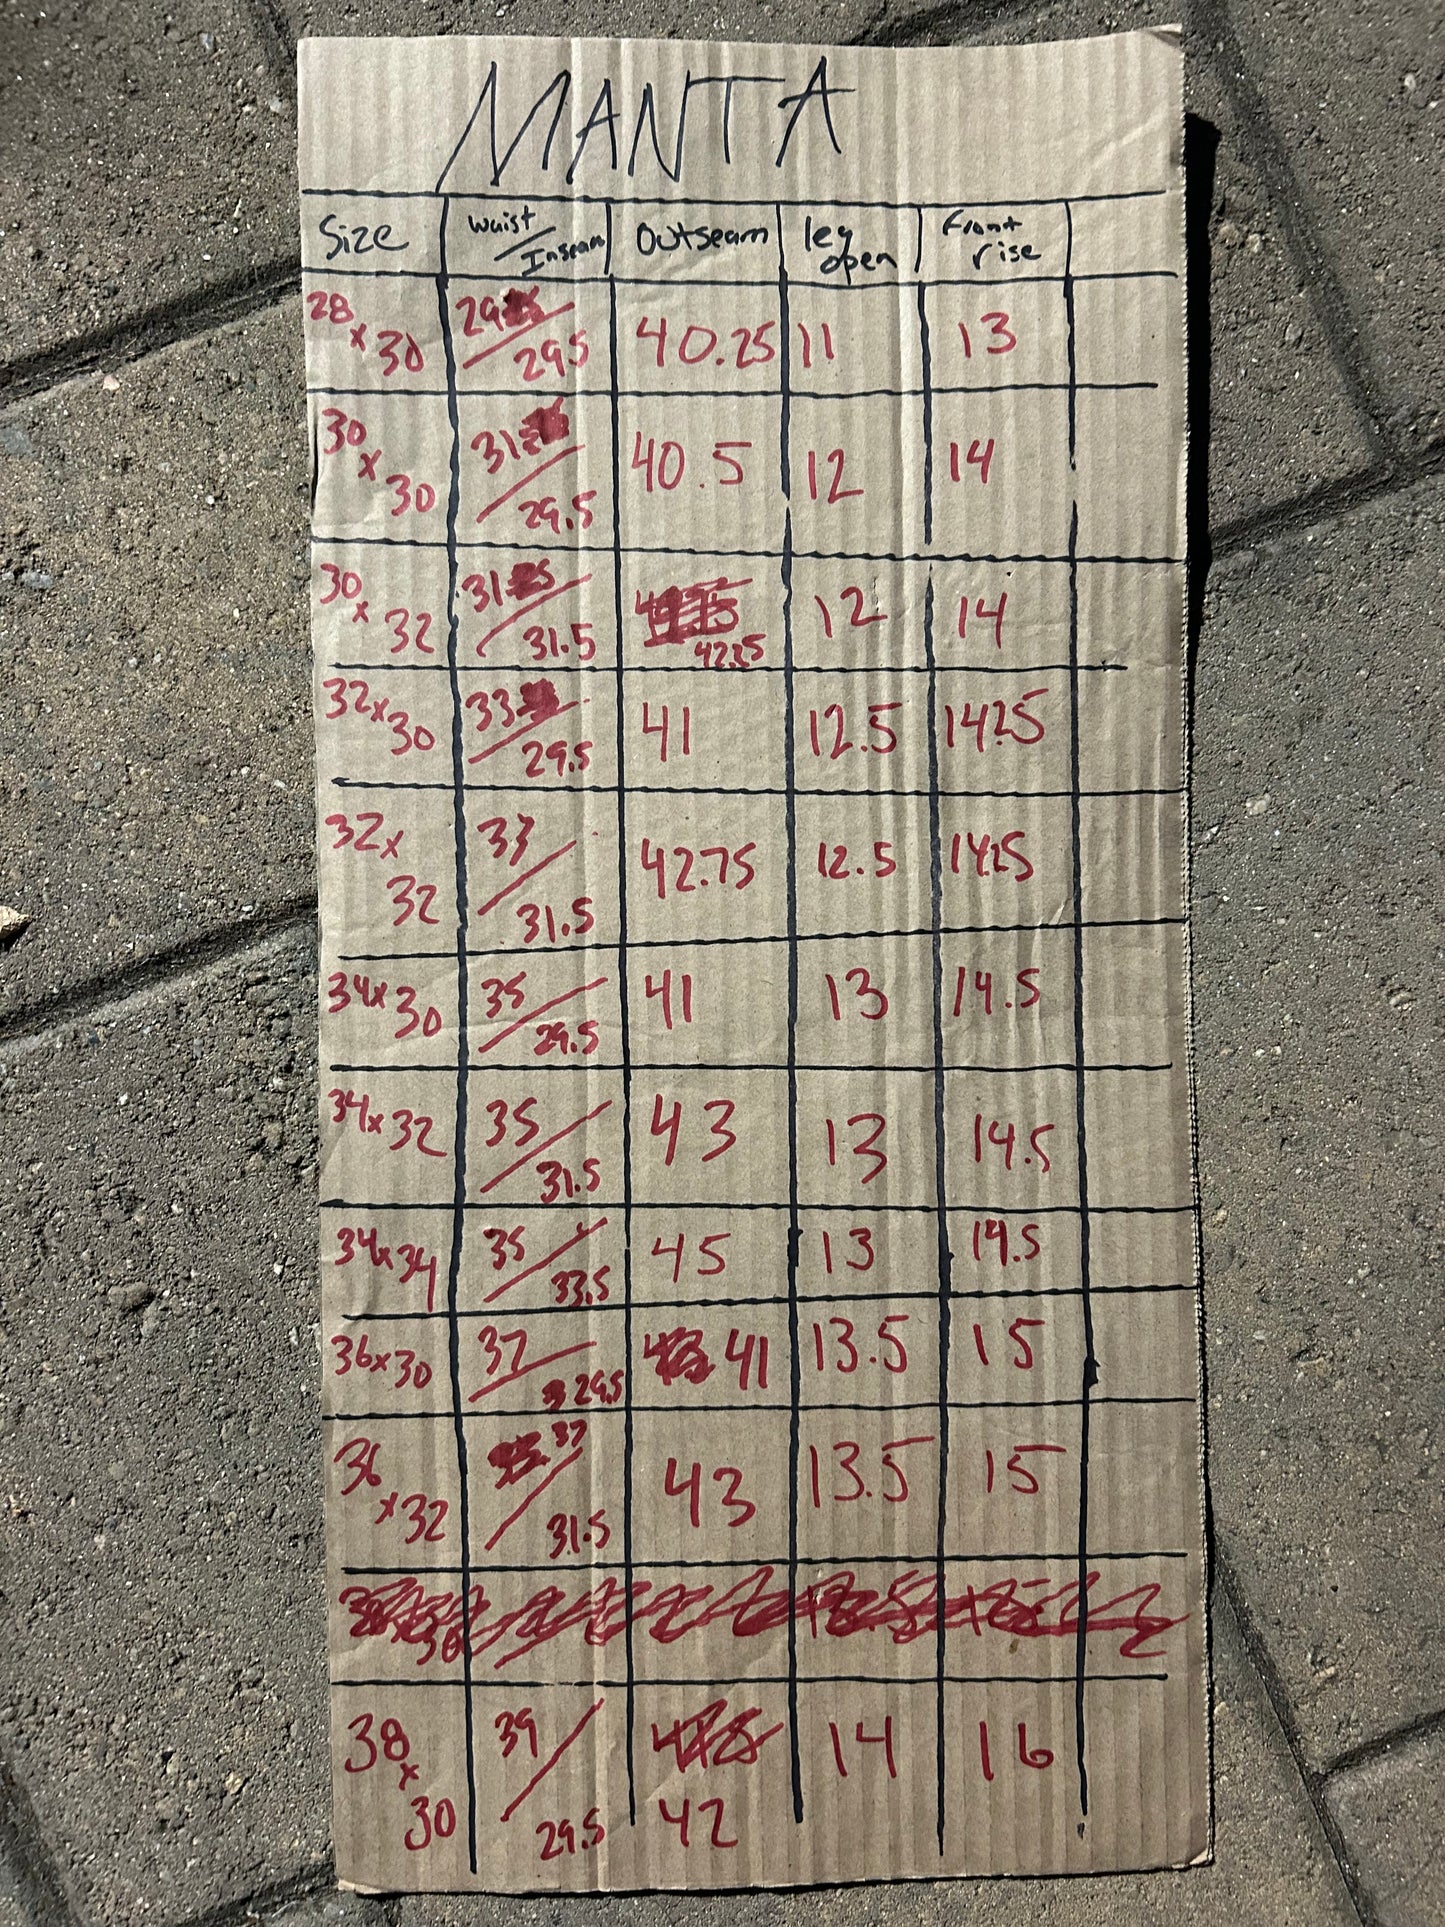 MANTA
Size waist / Inseam Outseam leg open Front rise
28 x 30 29 / 29.5 40.25 11 13
30 x 30 31 / 29.5 40.5 12 14
30 x 32 31 / 31.5 42.25 12 14
32 x 30 33 / 29.5 41 12.5 14.25
32 x 32 33 / 31.5 42.75 12.5 14.25
34 x 30 35 / 29.5 41 13 14.5
34 x 32 35 / 31.5 43 13 14.5
34 x 34 35 / 33.5 45 13 14.5
36 x 30 37 / 29.5 41 13.5 15
36 x 32 37 / 31.5 43 13.5 15
38 x 30 39 / 29.5 42 14 16